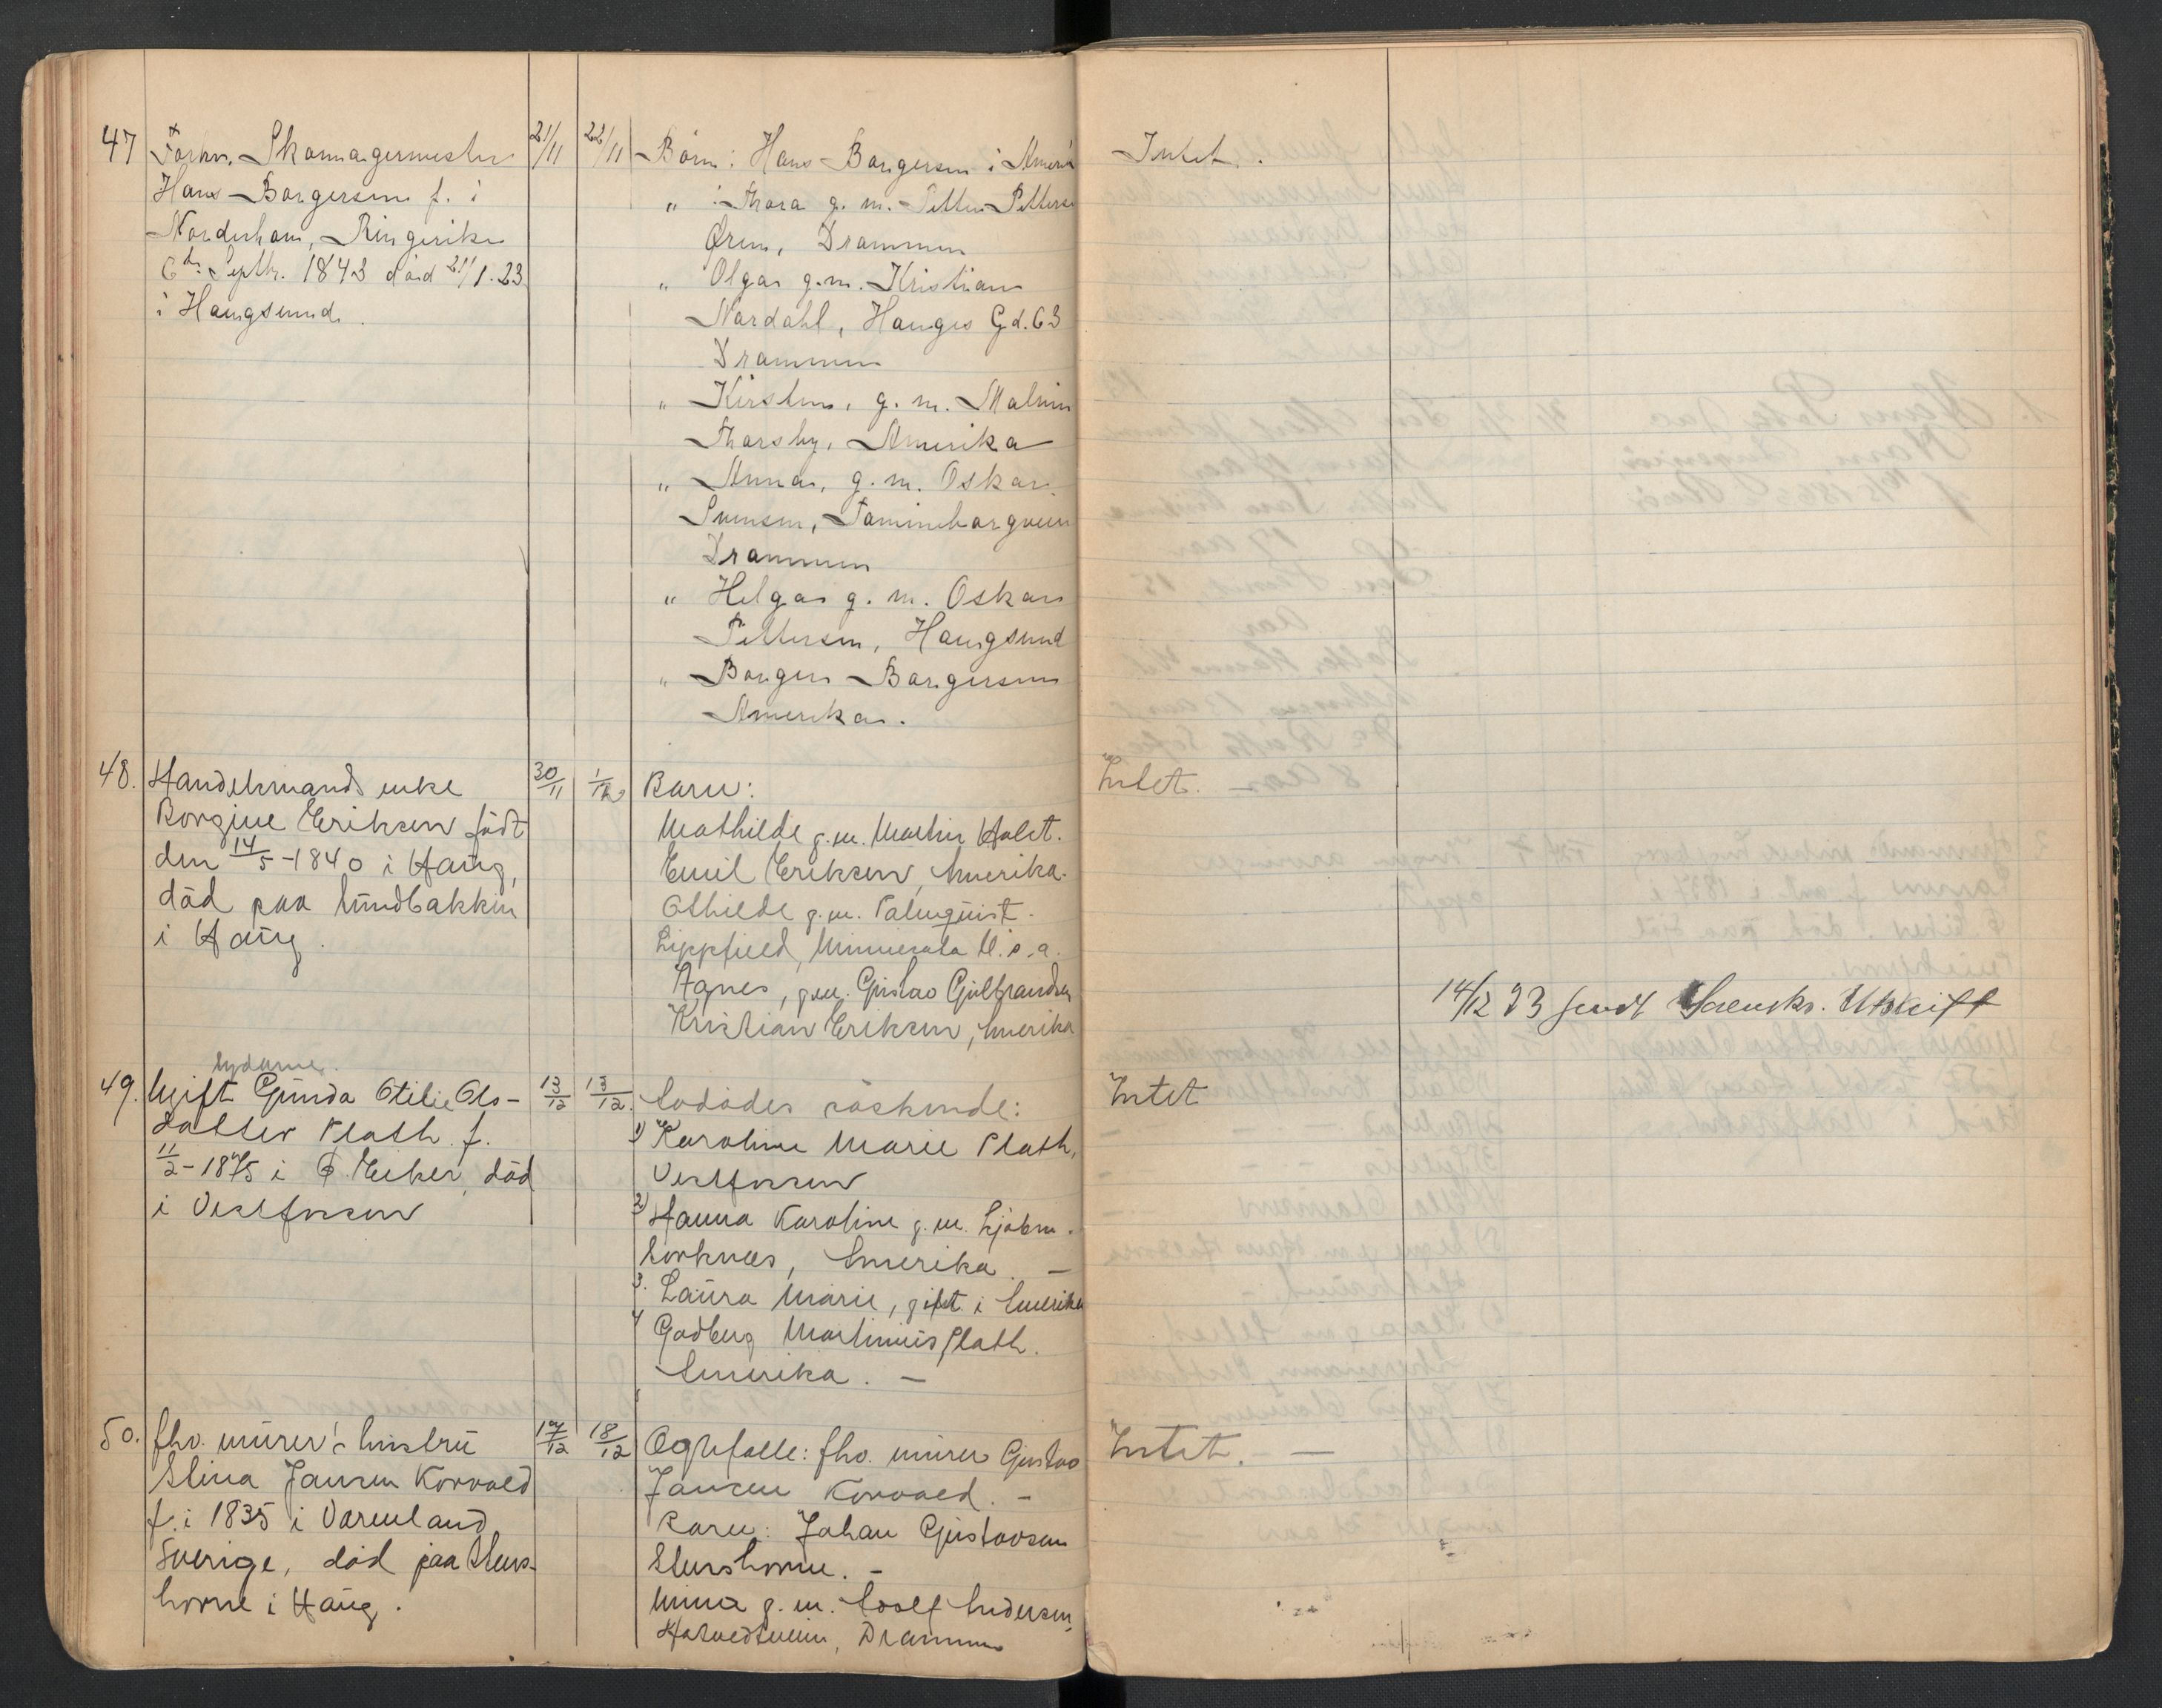 47 Forhv. Skomagermester 21/11 22/11 Børn: Hans Borgersen i Amerika Intet.
Hans Borgersen f. i
" Thora g. m. Petter Petterse
Norderhov, Ringerike
Øren, Drammen
6te Septbr. 1843 død 21/1.23
" Olga g.m. Kristian
i Hougsund.
Nordahl, Hauges Gd. 63
Drammen
" Kirstine, g. m. Malvin
Thorsby, Amerika
" Anna, g. m. Oskar
Svensen, Tamineborgveien
Drammen
" Helga g. m. Oskar
Pettersen, Hougsund
" Borger Borgersen
Amerika.
48. Handelsmands enke 30/11 1/12 Barn: Intet.
Borgine Eriksen født
Mathilde g.m. Martin Holst.
den 14/5-1840 i Haug,
Emil Eriksen, Amerika.
død paa Lundbakken
Othilde g.m. Palmquist.
i Haug.
Lippfield, Minnesota U.s.a.
Agnes, g.m. Gustav Gulbrandsen
14/12 23 sendt Utskrift
Kristian Eriksen, Amerika
sydame.
49. Ugift Gunda Otilie Ols- 13/12 13/12. Avdødes søskende: Intet
datter Plath. f.
1) Karoline Marie Plath,
11/2-1875 i Ø. Eiker, død
Vestfossen
i Vestfossen
2) Hanna Karoline g. m.
Amerika. —
3. Laura Marie, gift i Amerika
4 Godberg Martinius Plath.
Amerika. —
50. fhv. murer's hustru 17/12 18/12 Egtefælle: fhv. murer Gustav Intet. —
Stina Jansen Korvald
Jansen Korvald. -
f. i 1835 i Värmland
Barn: Johan Gustavsen
Sverige, død paa Stens-
Stenshorne. -
horne i Haug.
Mina g. m. Adolf Andersen,
Drammen